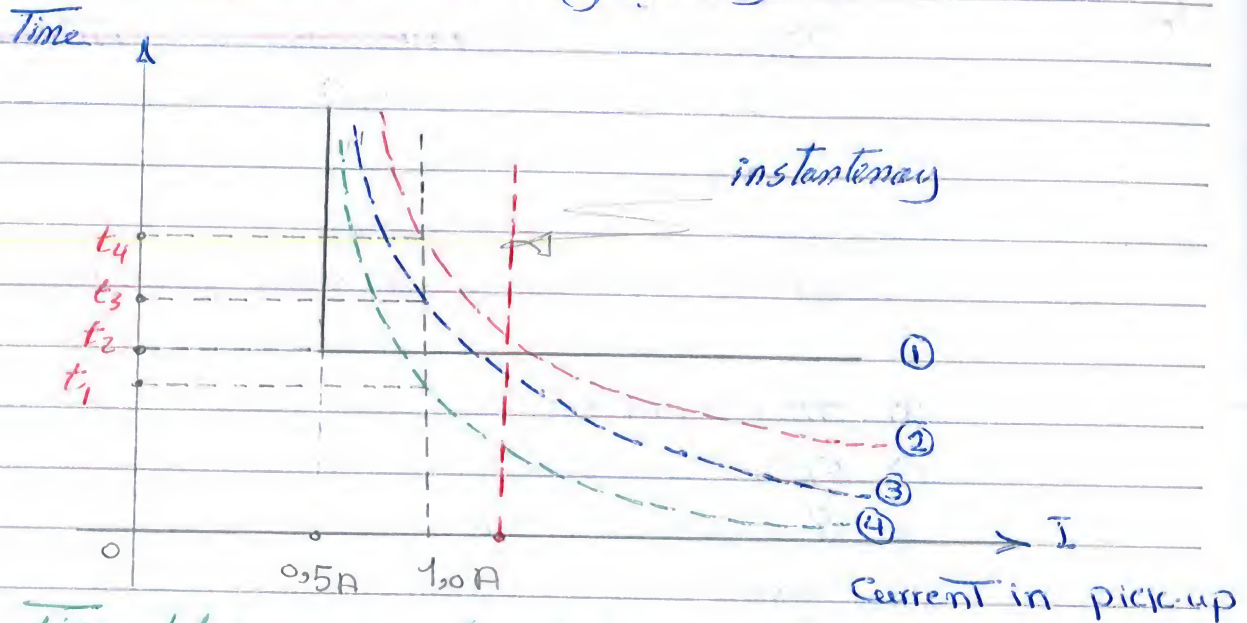 Time
instantenay
t4
t3
t2
t1
①
②
③
④
0
0,5A
1,0A
I
Current in pick-up